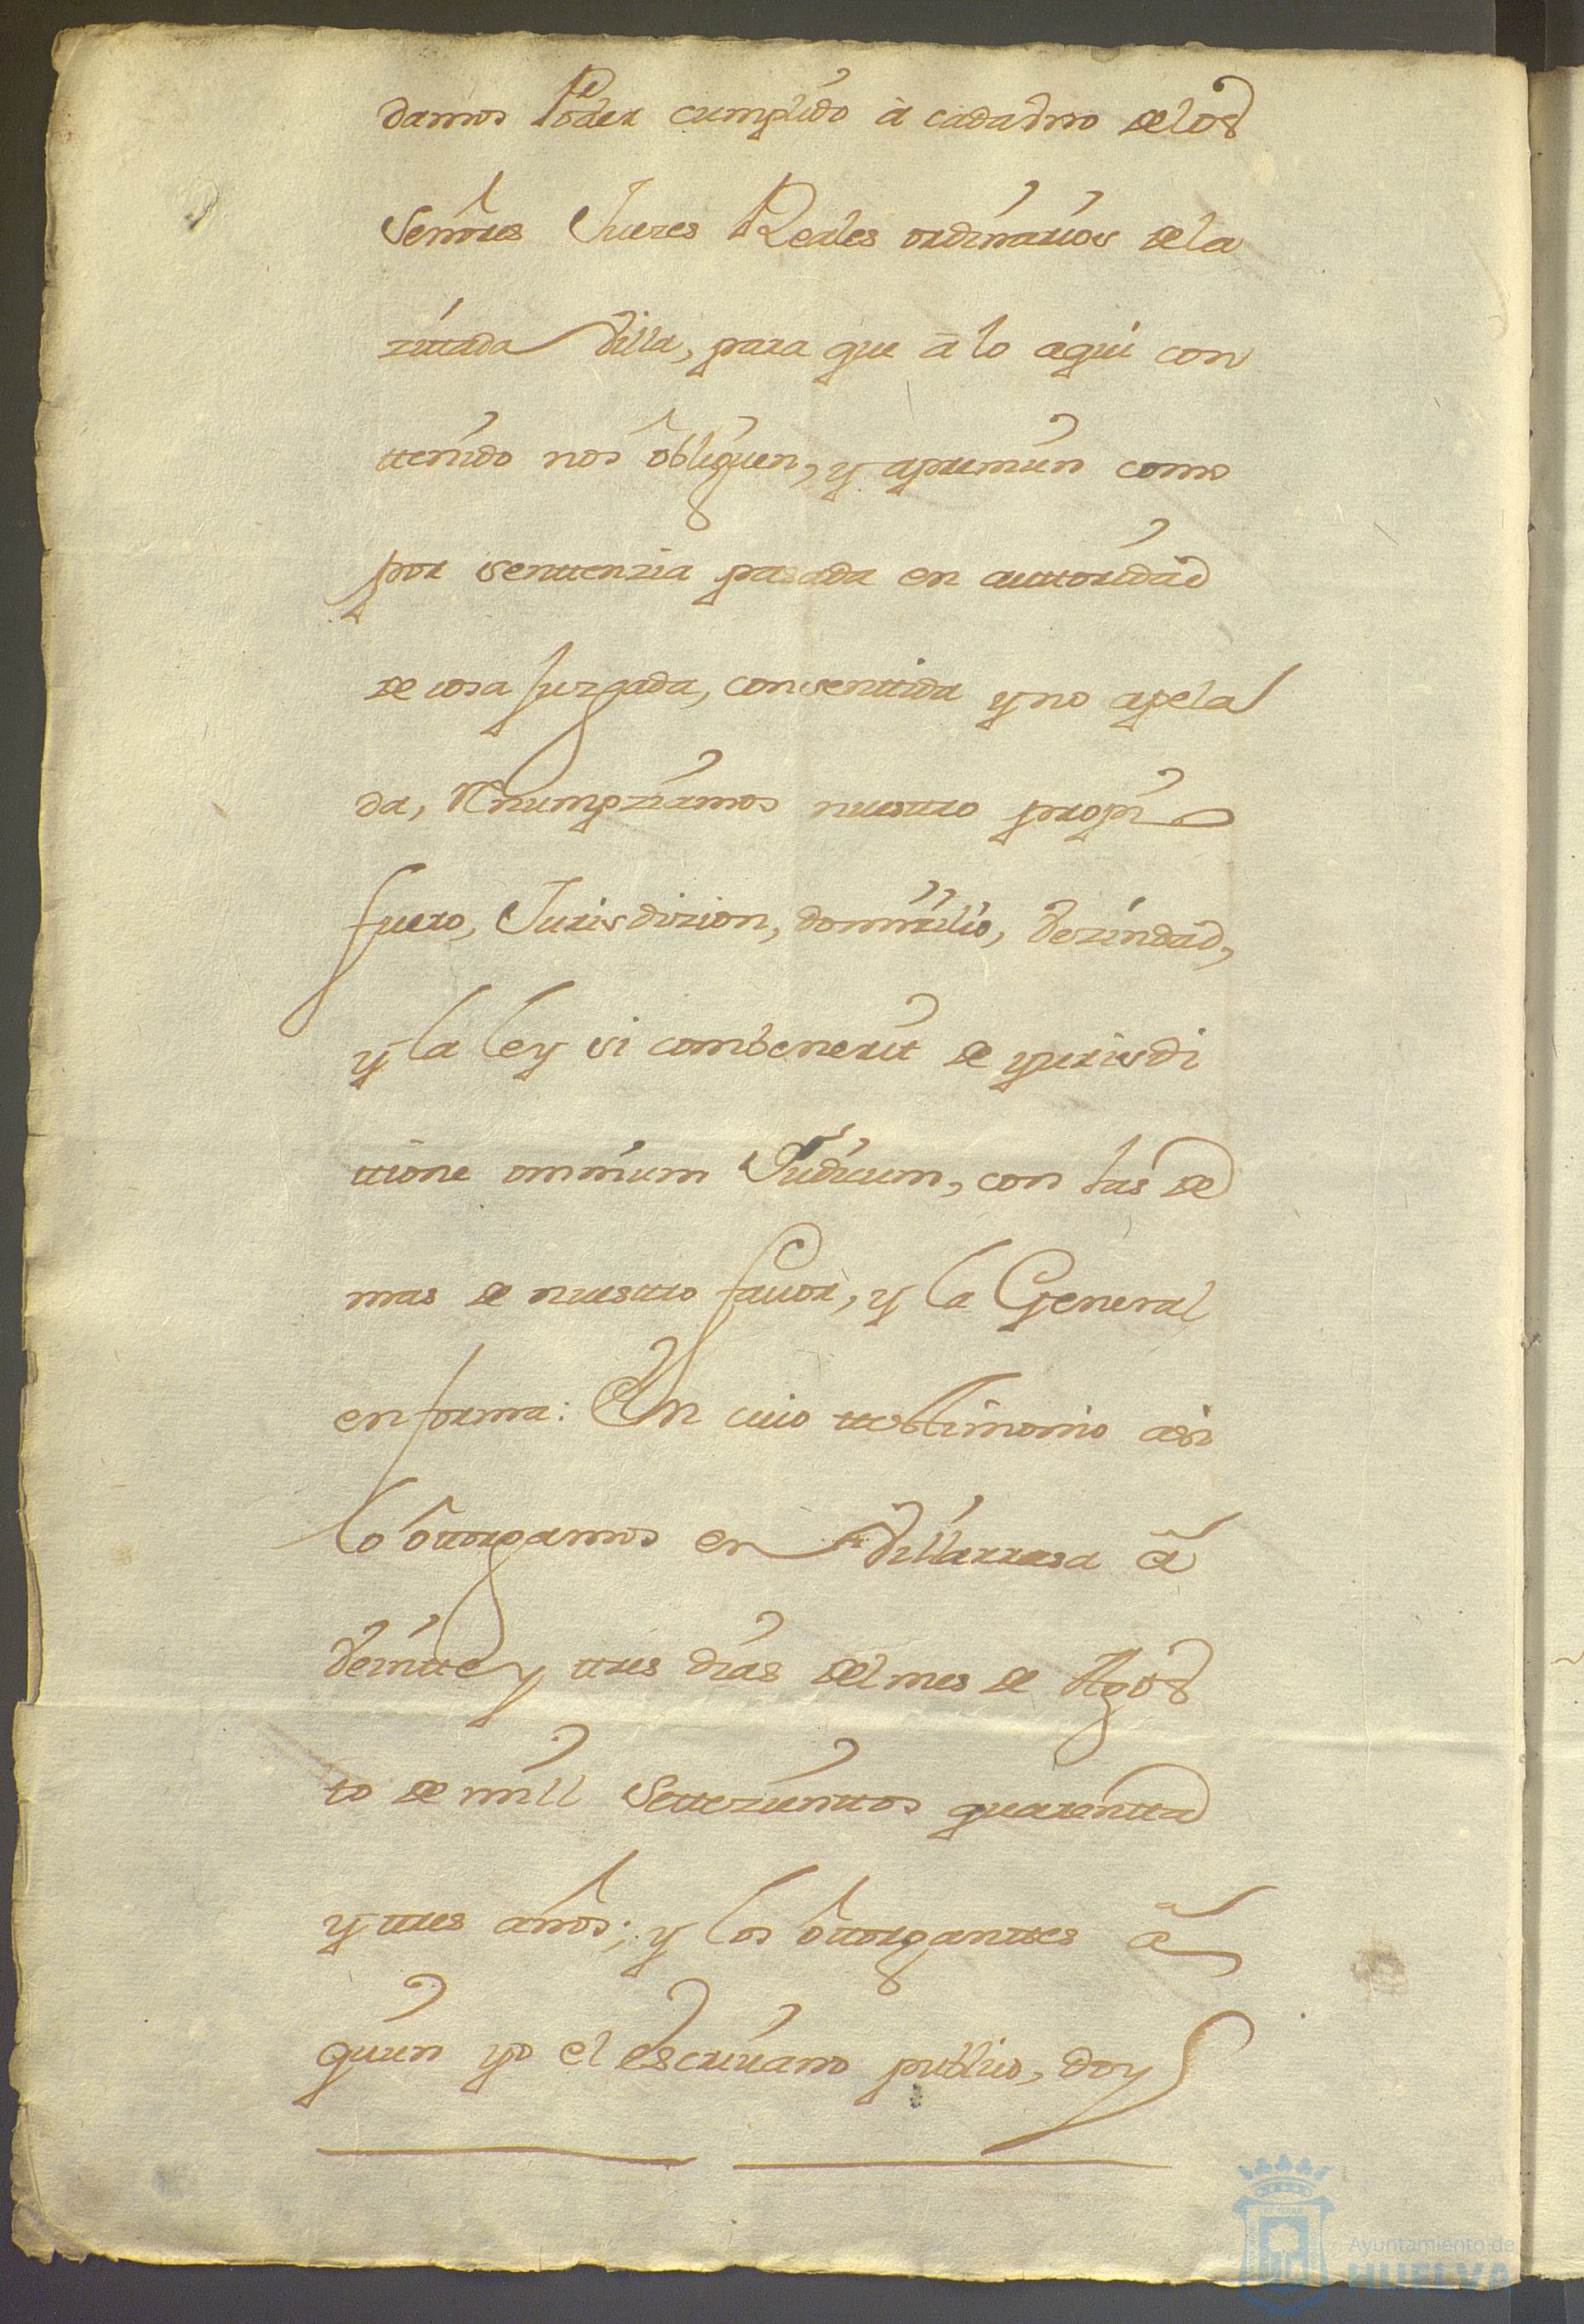 damos Poder cumplido à cada vno de los
Señores Juezes Reales ordinarios de la
zittada Villa, para que à lo aqui con
ttenido nos obliguen, y apremien como
por senttenzia pasada en auttoridad
de cosa Juzgada, consenttida y no apela
da, Renumpziamos nuesttro propio
fuero, Jurisdizion, domizilio, vezindad,
y la ley si combenerit de yurisdi
ttione omnium Judicum, con las de
mas de nuesttro favor, y la General
en forma: En cuio ttestimonio asi
lo ottorgamos en Villarrasa à
veintte y ttres dias del mes de Agos
to de mill Settezienttos quarentta
y ttres años; y los ottorganttes à
quien yo el escrivano publico, doy
Ayuntamiento de
HUELVA